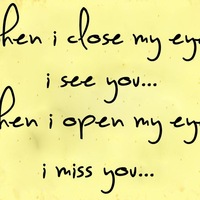 hen i close my eye
i see you...
hen i open my eye
i miss you...